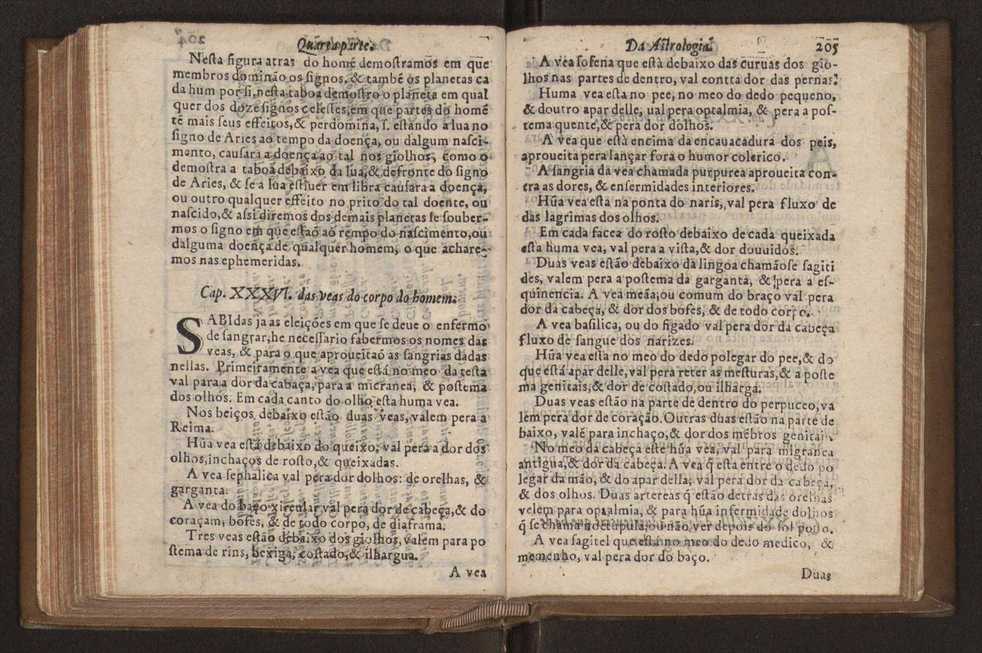 Quarta parte.
Nesta figura atras do homẽ demostramos em que
membros dominão os signos, & tambẽ os planetas ca
da hum por si, nesta taboa demostro o planeta em qual
quer dos doze signos celestes, em que partes do homẽ
tẽ mais seus effeitos, & perdomina, s. estãdo a lua no
signo de Aries ao tempo da doença, ou dalgum nasci-
mento, causara a doença ao tal nos giolhos, como o
demostra a taboa debaixo da lua, & defronte do signo
de Aries, & se a lũa estiuer em libra causara a doença,
ou outro qualquer effeito no prito do tal doente, ou
nascido, & assi diremos dos demais planetas se souber-
mos o signo em que estão ao tempo do nascimento, ou
dalguma doença de qualquer homem, o que achare-
mos nas ephemeridas.
Cap. XXXVI. das veas do corpo do homem.
SABIdas ja as eleições em que se deue o enfermo
de sangrar, he necessario sabermos os nomes das
veas, & para o que aproueitaõ as sangrias dadas
nellas. Primeiramente a vea que está no meo da testa
val para a dor da cabaça, para a micranea, & postema
dos olhos. Em cada canto do olho esta huma vea.
Nos beiços debaixo estão duas veas, valem pera a
Reima.
Hũa vea está debaixo do queixo, val pera a dor dos
olhos, inchaços de rosto, & queixadas.
A vea sephalica val pera dor dolhos: de orelhas, &
garganta.
A vea do baço xircular val pera dor de cabeça, & do
coraçam, bofes, & de todo corpo, de diaframa.
Tres veas estão debaixo dos giolhos, valem para po
stema de rins, bexiga, costado, & ilhargua.
A vea
Da Astrologia. 205
A vea sofena que està debaixo das curuas dos gio-
lhos nas partes de dentro, val contta dor das pernas.
Huma vea esta no pee, no meo do dedo pequeno,
& doutro apar delle, val pera optalmia, & pera a pos-
tema quente, & pera dor dolhos.
A vea que està encima da encauacadura dos peis,
aproueita pera lançar fora o humor colerico.
A sangria da vea chamada purpurea aproueita con-
tra as dores, & enfermidades interiores.
Hũa vea está na ponta do naris, val pera fluxo de
das lagrimas dos olhos.
Em cada facea do rosto debaixo de cada queixada
esta huma vea, val pera a vista, & dor douuidos.
Duas veas estão debaixo da lingoa chamãose sagiti
des, valem pera a postema da garganta, & pera a es-
quinencia. A vea meãa, ou comum do braço val pera
dor da cabeça, & dor dos bofes, & de todo corpo.
A vea basilica, ou do figado val pera dor da cabeça
fluxo de sangue dos narizes.
Hũa vea esta no meo do dedo polegar do pee, & do
que está apar delle, val pera reter as mesturas, & a poste
ma genitais, & dor de costado, ou ilharga.
Duas veas estão na parte de dentro do perpuceo, va
lem pera dor de coração. Outras duas estão na parte de
baixo, valẽ para inchaço, & dor dos mẽbros genitais.
No meo da cabeça este hũa vea, val para migranea
antigua, & dor da cabeça. A vea q̃ esta entre o dedo po
legar da mão, & do apar della, val pera dor da cabeça,
& dos olhos. Duas artereas q̃ estão detras das orelhas
velem para optalmia, & para hũa infermidade dolhos
q̃ se chama noctupula, ou não ver depois do sol posto.
A vea sagitel que está no meo do dedo medico, &
memenho, val pera dor do baço.
Duas